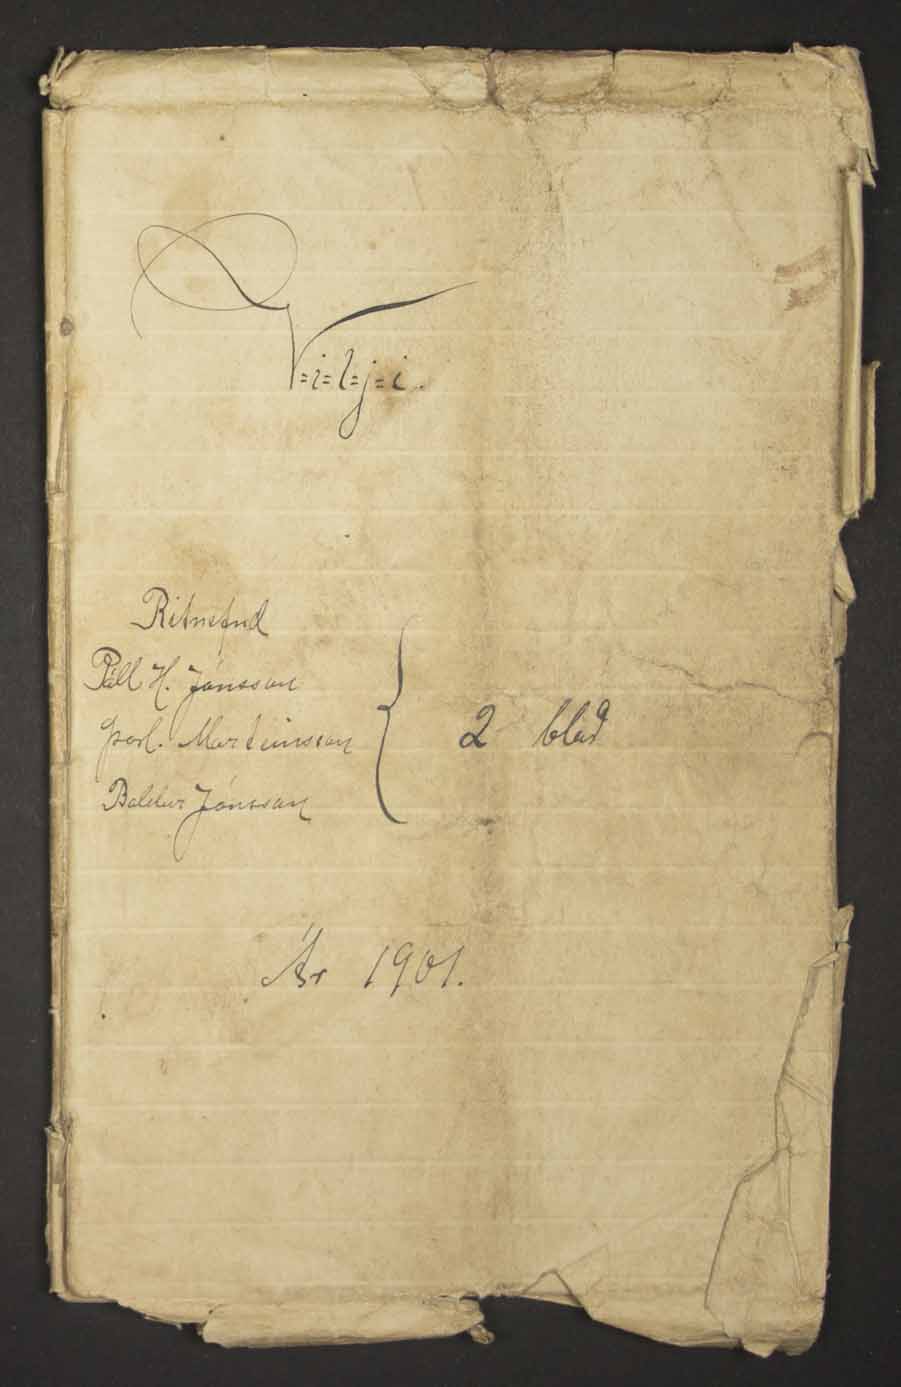 V=i=l=j=i.
Ritnefnd
Páll H. Jónsson
Þorl. Marteinsson
Baldur Jónsson
2 blað
Ár 1901.